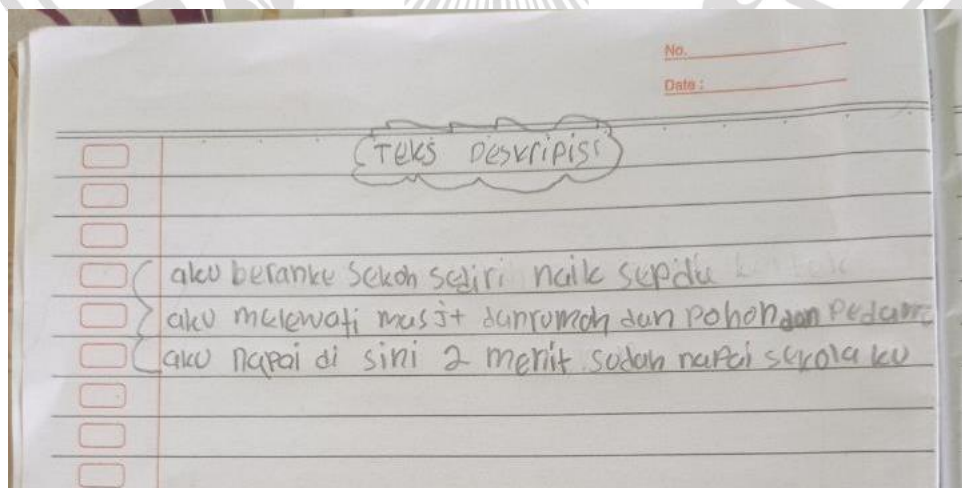 No.
Date :
Teks Deskripisi
aku beranke sekoh sediri naik sepdu
aku melewati masjt dan rumah dan pohon dan Pedam
aku napai di sini 2 menit sudah napai sekola ku